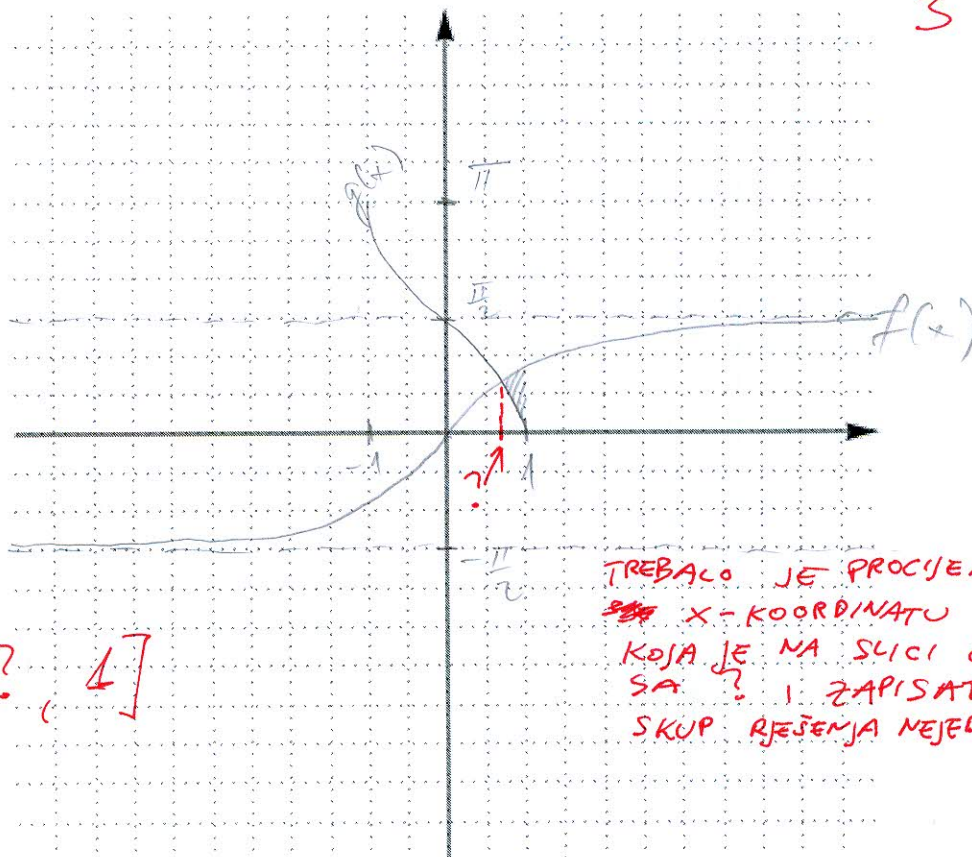 5
g(x)
π
π/2
f(x)
-1
1
?
-π/2
TREBALO JE PROCIJE
X-KOORDINATU
KOJA JE NA SLICI
SA ? I ZAPISAT
SKUP RJEŠENJA NEJE
?, 1]